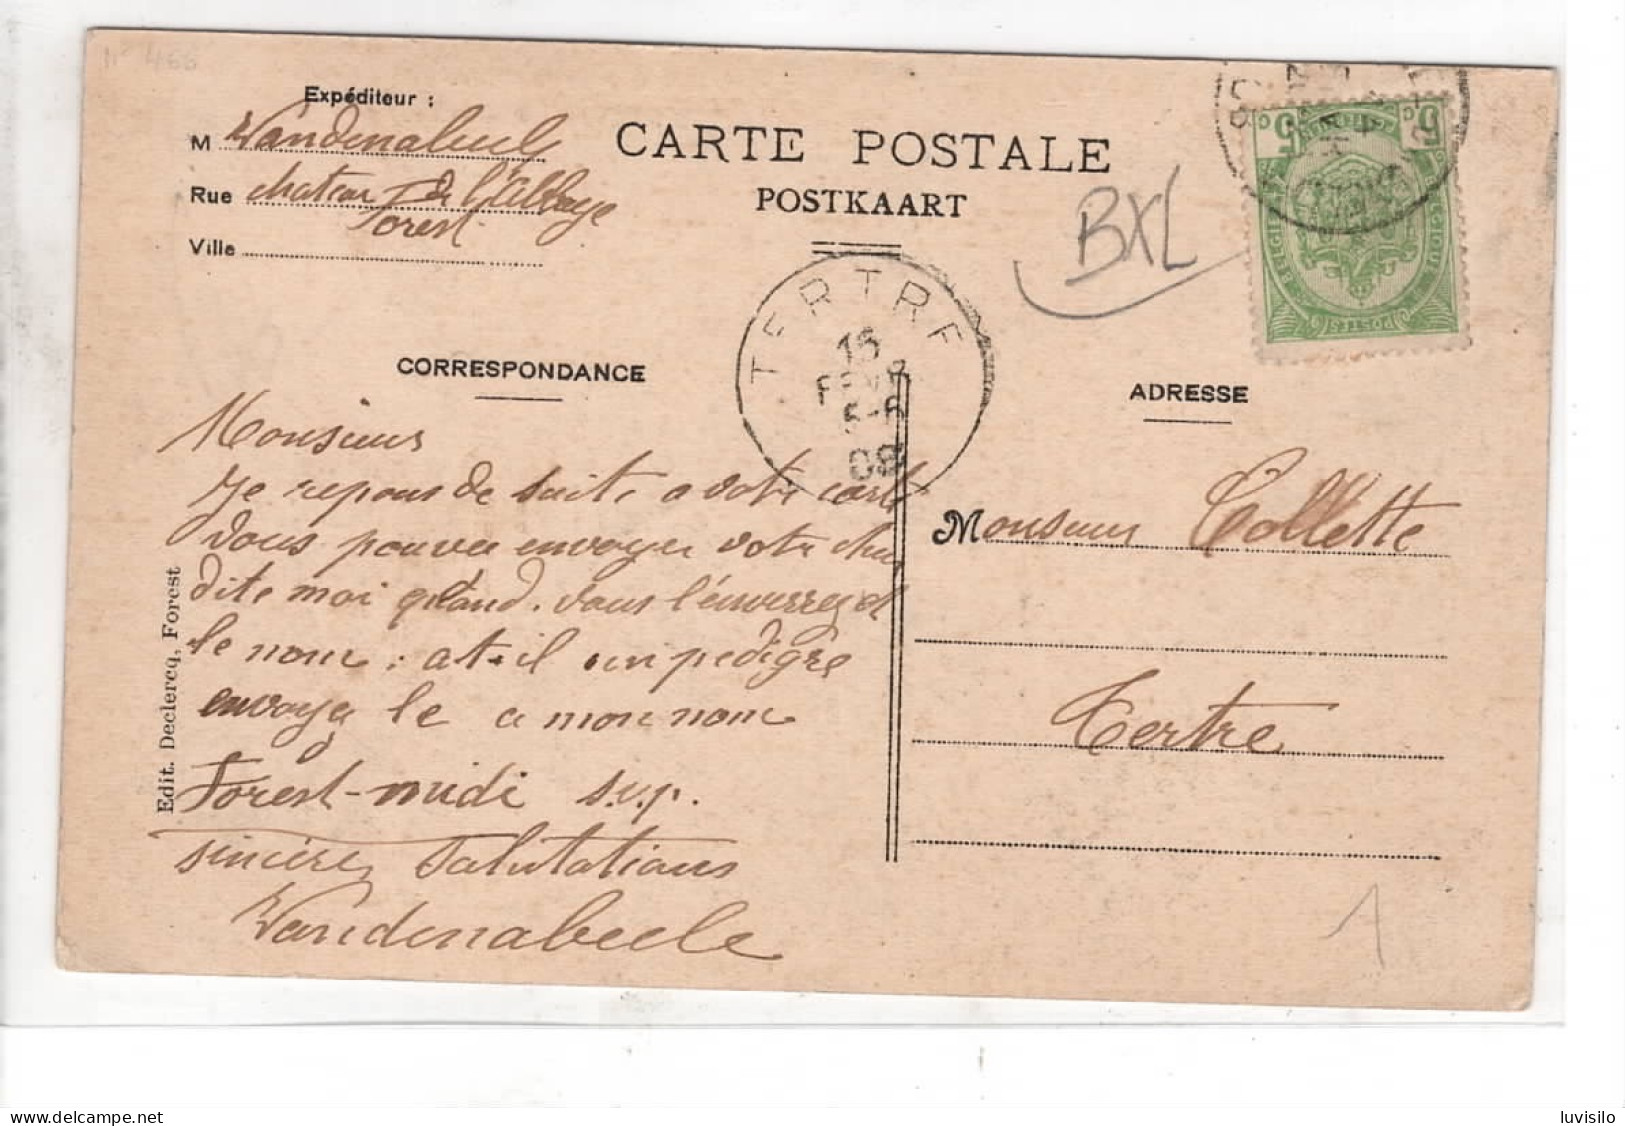 N° 466
Expéditeur :
M Vandenabeele
Rue chateau de l'Abbaye
Forest
Ville
CARTE POSTALE
POSTKAART
BXL
5 C 5 C
POSTES
TERTRE
15
FEVR
5-6
08
CORRESPONDANCE
ADRESSE
Monsieur
Je repons de suite a votre carte
Vous pouvez envoyer votre chien
dite moi quand. vous l'enverrez et
le nom : at-il un pedigre
envoyez le a mon nom
Forest-midi s.v.p.
sincères Salutations
Vandenabeele
Monsieur Collette
Tertre
Edit. Declercq, Forest
1
delcampe.net
luvisilo